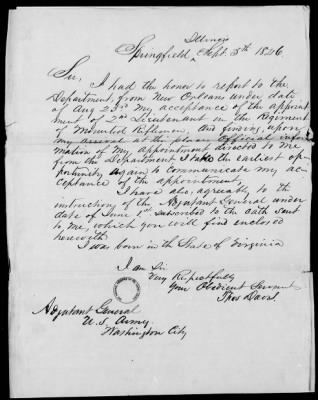 Illinois
Springfield, Sept. 5th 1846
Sir, I had the honor to report to the
Department, from New Orleans under date
of Aug 23rd my acceptance of the appoint
ment of 2nd Lieutenant in the Regiment
of Mounted Riflemen, and finding, upon
my arrival at this place official infor
mation of my appointment directed to me
from the Department I take the earliest op-
portunity again to communicate my ac-
ceptance of the appointment,
I have also, agreeably to the
instructions of the Adjutant General under
date of June 1st subscribed to the oath sent
to me, which you will find enclosed
herewith
I was born in the State of Virginia
I am Sir
Very Respectfully
Your Obedient Servant
Thos Davis.
Adjutant General
U. S. Army
Washington City